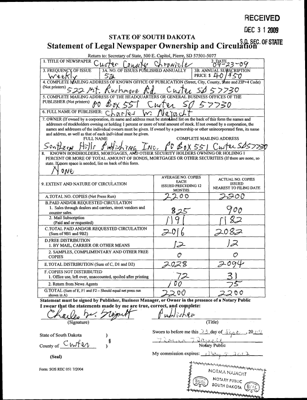 RECEIVED
DEC 31 2009
S.D. SEC. OF STATE
STATE OF SOUTH DAKOTA
Statement of Legal Newspaper Ownership and Circulation
Return to: Secretary of State, 500 E. Capitol, Pierre, SD 57501-5077
1. TITLE OF NEWSPAPER Custer County Chronicle 2. DATE 09-23-09
3. FREQUENCY OF ISSUE Weekly 3A. NO. OF ISSUES PUBLISHED ANNUALLY 52 3B. ANNUAL SUBSCRIPTION PRICE $
4. COMPLETE MAILING ADDRESS OF KNOWN OFFICE OF PUBLICATION (Street, City, County, State and ZIP+4 Code)
(Not printer) 522 Mt. Rushmore Rd Custer SD 57730
5. COMPLETE MAILING ADDRESS OF THE HEADQUARTERS OR GENERAL BUSINESS OFFICES OF THE
PUBLISHER (Not printer) PO Box 551 Custer SD 57730
6. FULL NAME OF PUBLISHER: Charles W.
7. OWNER (If owned by a corporation, its name and address must be
names and addresses of the individual owners must be given. If owned by a partnership or other unincorporated firm, its name
and address, as well as that of each individual must be given.
FULL NAME COMPLETE MAILING ADDRESS
Southern Hills Publishing Inc. PO Box 551 Custer SD 57730
8. KNOWN BONDHOLDERS, MORTGAGES, AND OTHER SECURITY HOLDERS OWNING OR HOLDING 1
PERCENT OR MORE OF TOTAL AMOUNT OF BONDS, MORTGAGES OR OTHER SECURITIES (If there are none, so
state.
NONE
9. EXTENT AND NATURE OF CIRCULATION
AVERAGE NO. COPIES EACH ISSUES PRECEDING 12 MONTHS
ACTUAL NO. COPIES ISSUED NEAREST TO FILING DATE
A. TOTAL NO. COPIES (Net Press Run) 2200 2200
B. PAID AND/OR REQUESTED CIRCULATION
1. Sales through dealers and carriers, street vendors and
counter sales. 825 900
2. Mail Subscription
(Paid and or requested) 1191 1182
C. TOTAL PAID AND/OR REQUESTED CIRCULATION
(Sum of 9B1 and 9B2) 2016 2082
D. FREE DISTRIBUTION
1. BY MAIL, CARRIER OR OTHER MEANS 12 12
2. SAMPLES, COMPLIMENTARY AND OTHER FREE
COPIES 0 0
E. TOTAL DISTRIBUTION (Sum of C, D1 and D2) 2028 2094
F. COPIES NOT DISTRIBUTED
1. Office use, left over, unaccounted, spoiled after printing 72 31
2. Return from News Agents 100 75
G. TOTAL (Sum of E, F1 and F2 - Should equal net press run
shown in A) 2200 2200
Statement must be signed by Publisher, Business Manager, or Owner in the presence of a Notary Public
I swear that the statements made by me are true, correct, and complete:
Publisher
(Signature) (Title)
State of South Dakota )
County of Custer ) §
(Seal)
Sworn to before me this 23 day of Sept
Notary Public
My commission expires:
NORMA NAJACHT
NOTARY PUBLIC
SOUTH DAKOTA